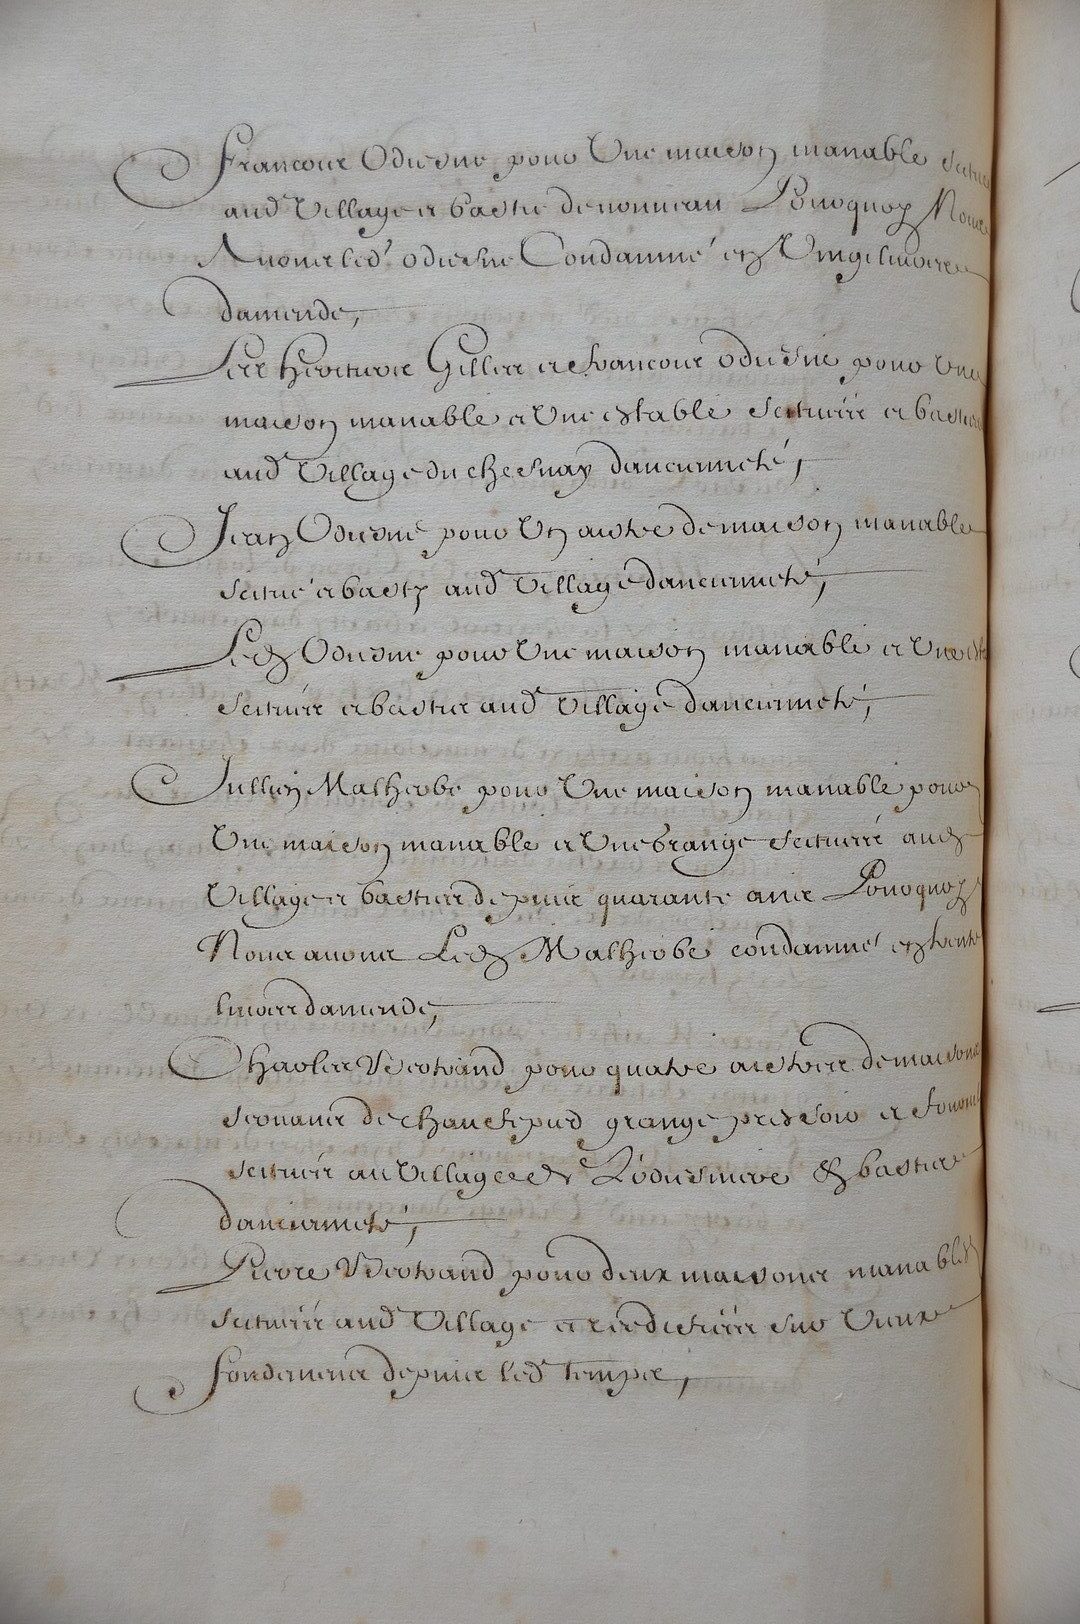 Francois Odiesne pour Une maison manable
aud Village et bastie de nouveau Pourquoy Nous
Auons led odiesne Condamné en Vingt liures
damende,
Les Heritiers Gilles et francois odiesne pour Une
maison manable et Une estable scituées et basties
aud Village du chesnay dancienneté,
Jean Odiesne pour Un aistre de maison manable
scitué et basty aud Village dancienneté,
Led Odiesne pour Une maison manable et Une
scituées et basties aud Village dancienneté,
Jullien Malherbe pour Une maison manable pour
Une maison manable et Une grange scituées aud
Village et basties depuis quarante ans Pourquoy
Nous auons Led Malherbe condamné en trente
liures damende,
Charles Bertrand pour quatre aistres de maisons
seruans de chaufepied grange pressoir et
scituées au Village de Lodiesniere et basties
dancienneté,
Pierre Bertrand pour deux maisons manables
scituées aud Village et reedifiées sur Vieux
fondemens depuis led temps,